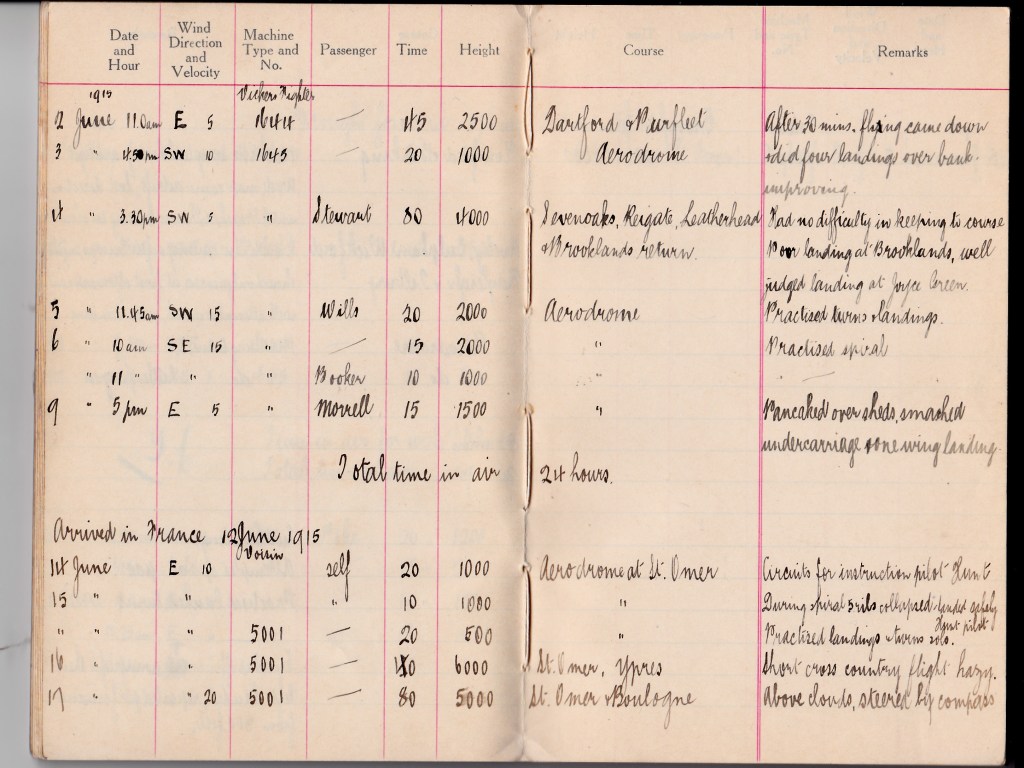 Date and Hour Wind Direction and Velocity Machine Type and No. Passenger Time Height Course Remarks
1915 Vickers Fighter
2 June 11.0am E 5 1644 — 45 2500 Dartford & Purfleet After 30 mins. flying came down
3 " 4.50pm SW 10 1645 — 20 1000 Aerodrome & did four landings over bank.
improving.
4 " 3.30pm SW 5 " Stewart 80 4000 Sevenoaks, Reigate, Leatherhead Had no difficulty in keeping to course
& Brooklands return. Poor landing at Brooklands, well
judged landing at Joyce Green.
5 " 11.45am SW 15 " Wills 20 2000 Aerodrome Practised turns & landings.
6 " 10am SE 15 " — 15 2000 " Practised spiral
" " 11 " " " Booker 10 1000 " —
9 " 5pm E 5 " Morrell 15 1500 " Pancaked over sheds, smashed
undercarriage & one wing landing.
Total time in air 24 hours.
Arrived in France 12 June 1915
Voisin
14 June E 10 self 20 1000 Aerodrome at St. Omer Circuits for instruction pilot Hunt
15 " " " 10 1000 " During spiral 3 ribs collapsed. landed safely
Hunt pilot
" " 5001 — 20 500 " Practised landings & turns solo.
16 " 5001 — 6000 St. Omer, Ypres Short cross country flight hazy.
17 " " 20 5001 — 80 5000 St. Omer & Boulogne Above clouds, steered by compass